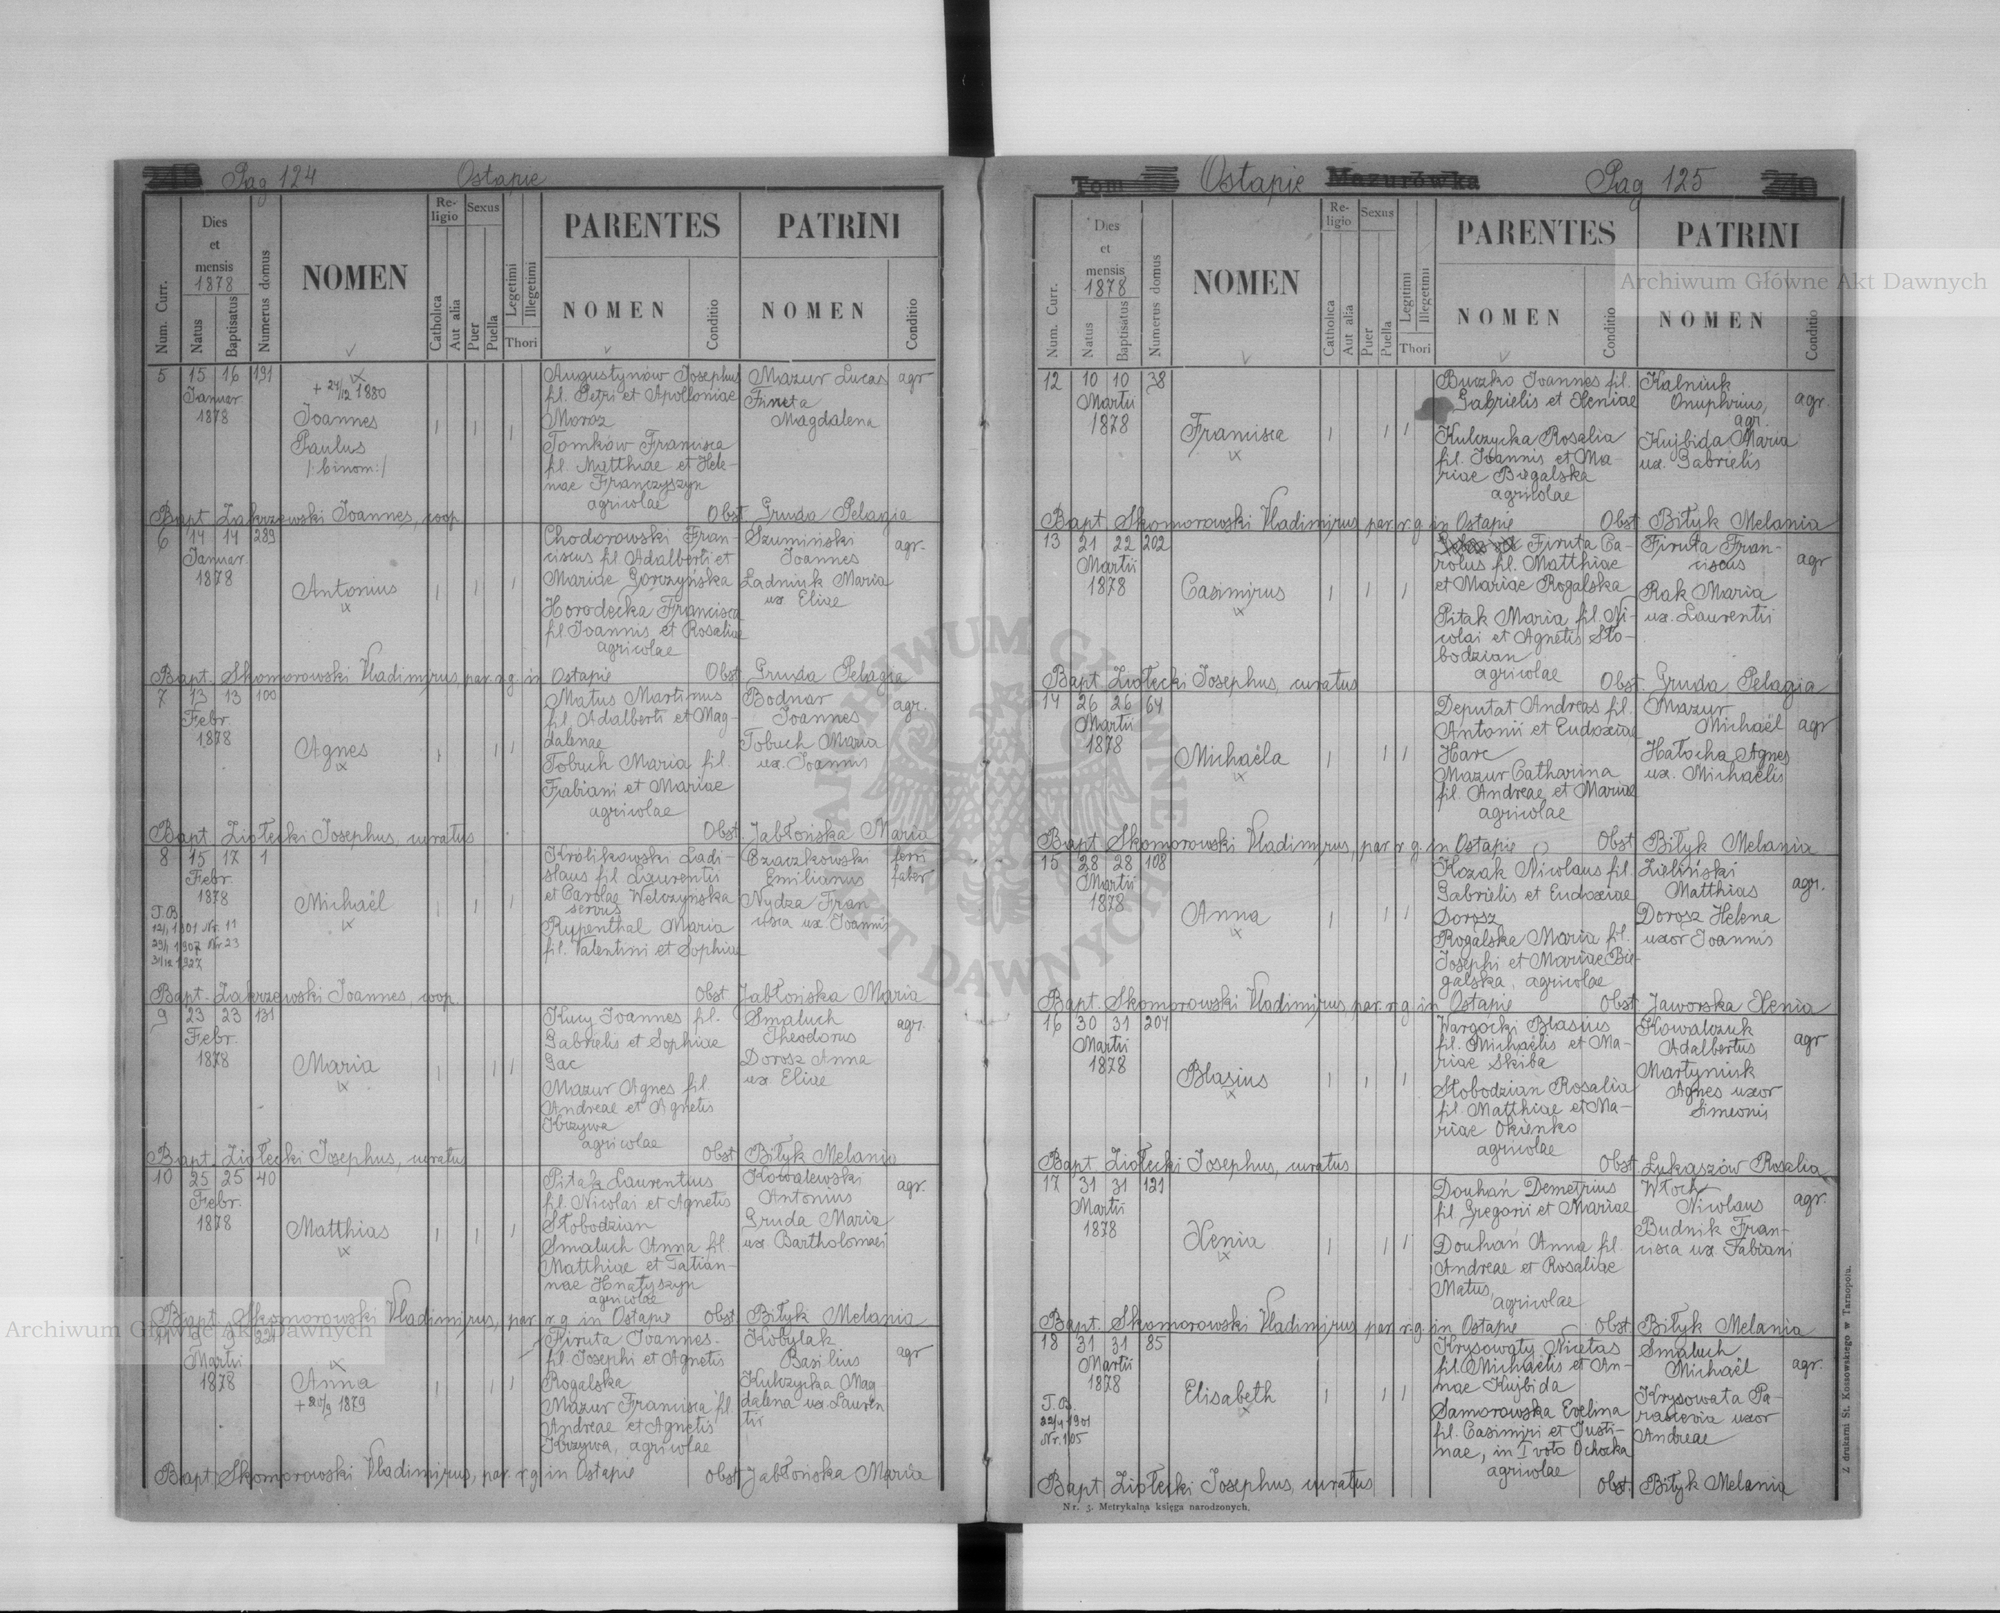 Pag 124 Ostapie
Num. Curr.
Dies
et
mensis
1878
Natus
Baptisatus
Numerus domus
NOMEN
Religio
Catholica
Aut alia
Sexus
Puer
Puella
Legetimi
Illegetimi
Thori
PARENTES
NOMEN
Conditio
PATRINI
NOMEN
Conditio
5 15 16 191
Januar
1878
+ 24/12 1880
Joannes
Paulus
/:binom:/
Augustynów Josephus
fil. Petri et Apolloniae
Moroz
Tomków Francisca
fil. Matthiae et Hele-
nae Franczyszyn
agricolae
Mazur Lucas agr
Firuta
Magdalena
Bapt Zakrzewski Joannes, coop. Obst Gruda Pelagia
6 14 14 289
Januar
1878
Antonius
Chodorowski Fran-
ciscus fil Adalberti et
Mariae Gorczyńska
Horodecka Francisca
fil Joannis et Rosaliae
agricolae
Szumiński agr.
Joannes
Ładniuk Maria
ux. Eliae
Bapt. Skomorowski Vladimirus, par. r. g. in Ostapie Obst Gruda Pelagia
7 13 13 100
Febr.
1878
Agnes
Matus Martinus
fil. Adalberti et Mag-
dalenae
Tobuch Maria fil.
Frabiani et Mariae
agricolae
Bodnar agr.
Joannes
Tobuch Maria
ux. Joannis
Bapt Ziołecki Josephus, curatus Obst. Jabłońska Maria
8 15 17 1
Febr
1878
Michaël
T.B.
12/1 1901 Nr. 11
29/1 1907 Nr 23
31/12 1927
Królikowski Ladi-
slaus fil Laurentis
et Carolae Welczyńska
servus
Rypenthal Maria
fil. Valentini et Sophiae
Czaczkowski ferri
Emilianus faber
Nydza Fran
cisca ux. Joannis
Bapt. Zakrzewski Joannes, coop. Obst Jabłońska Maria
9 23 23 131
Febr.
1878
Maria
Kucy Joannes fil.
Gabrielis et Sophiae
Gac
Mazur Agnes fil
Andreae et Agnetis
Krzywa
agricolae
Smaluch agr.
Theodorus
Dorosz Anna
ux Eliae
Bapt. Ziołecki Josephus, curatus Obst Biłyk Melania
10 25 25 40
Febr.
1878
Matthias
Pitak Laurentius
fil. Nicolai et Agnetis
Słobodzian
Smaluch Anna fil.
Matthiae et Tatian-
nae Hnatyszyn
agricolae
Kowalewski agr.
Antonius
Gruda Maria
ux. Bartholomaei
Bapt Skomorowski Vladimirus, par r. g in Ostapie Obst. Biłyk Melania
11 9 9 224
Martii
1878
Anna
+ 20/9 1879
Firuta Joannes
fil. Josephi et Agnetis
Rogalska
Mazur Francisca fil.
Andreae et Agnetis
Krzywa, agricolae
Kobylak agr
Basilius
Kulczycka Mag-
dalena ux. Lauren
tii
Bapt Skomorowski Vladimirus, par. r. g in Ostapie Obst Jabłońska Maria
Tom Ostapie Mazurówka Pag 125
Num. Curr.
Dies
et
mensis
1878
Natus
Baptisatus
Numerus domus
NOMEN
Religio
Catholica
Aut alia
Sexus
Puer
Puella
Legitimi
Illegetimi
Thori
PARENTES
NOMEN
Conditio
PATRINI
NOMEN
Conditio
12 10 10 38
Martii
1878
Francisca
Buczko Joannes fil.
Gabrielis et Xeniae
Kulczycka Rosalia
fil. Joannis et Ma-
riae Biegalska
agricolae
Kalniuk
Onuphrius, agr.
agr.
Kujbida Maria
ux. Gabrielis
Bapt. Skomorowski Vladimirus, par. r. g in Ostapie Obst. Biłyk Melania
13 21 22 202
Martii
1878
Casimirus
Firuta Ca-
rolus fil. Matthiae
et Mariae Rogalska
Pitak Maria fil. Ni-
colai et Agnetis Sło-
bodzian
agricolae
Firuta Fran-
ciscus agr
Rak Maria
ux. Laurentii
Bapt. Ziołecki Josephus, curatus Obst. Gruda Pelagia
14 26 26 64
Martii
1878
Michaëla
Deputat Andreas fil.
Antonii et Eudoxiae
Harc
Mazur Catharina
fil. Andreae et Mariae
agricolae
Mazur
Michaël agr
Hałocha Agnes
ux. Michaëlis
Bapt Skomorowski Vladimirus, par r. g. in Ostapie Obst Biłyk Melania
15 28 28 108
Martii
1878
Anna
Kozak Nicolaus fil.
Gabrielis et Eudoxiae
Dorosz
Rogalska Maria fil.
Josephi et Mariae Bie-
galska, agricolae
Zieliński
Matthias agr.
Dorosz Helena
uxor Joannis
Bapt. Skomorowski Vladimirus, par. r. g in Ostapie Obst Jaworska Xenia
16 30 31 204
Martii
1878
Blasius
Wargocki Blasius
fil. Michaëlis et Ma-
riae Skiba
Słobodzian Rosalia
fil. Matthiae et Ma-
riae Okienko
agricolae
Kowalczuk
Adalbertus agr
Martyniuk
Agnes uxor
Simeonis
Bapt Ziołecki Josephus, curatus Obst. Łukaszów Rosalia
17 31 31 121
Martii
1878
Xenia
Douhań Demetrius
fil. Gregorii et Mariae
Douhań Anna fil.
Andreae et Rosaliae
Matus,
agricolae
Włoch
Nicolaus agr.
Budnik Fran-
cisca ux. Fabiani
Bapt. Skomorowski Vladimirus par r. g. in Ostapie Obst. Biłyk Melania
18 31 31 85
Martii
1878
Elisabeth
T.B.
22/4 1901
Nr. 105
Krysowaty Nicetas
fil. Michaëlis et An-
nae Kujbida
Samorowska Evelina
fil. Casimiri et Justi-
nae, in I voto Ochocka
agricolae
Smaluch
Michaël agr.
Krysowata Pa-
rascevia uxor
Andreae
Bapt Ziołecki Josephus, curatus Obst. Biłyk Melania
Nr. 3. Metrykalna księga narodzonych.
Z drukarni St. Kossowskiego w Tarnopolu.
Archiwum Główne Akt Dawnych
Archiwum Główne Akt Dawnych
ARCHIWUM GŁÓWNE AKT DAWNYCH